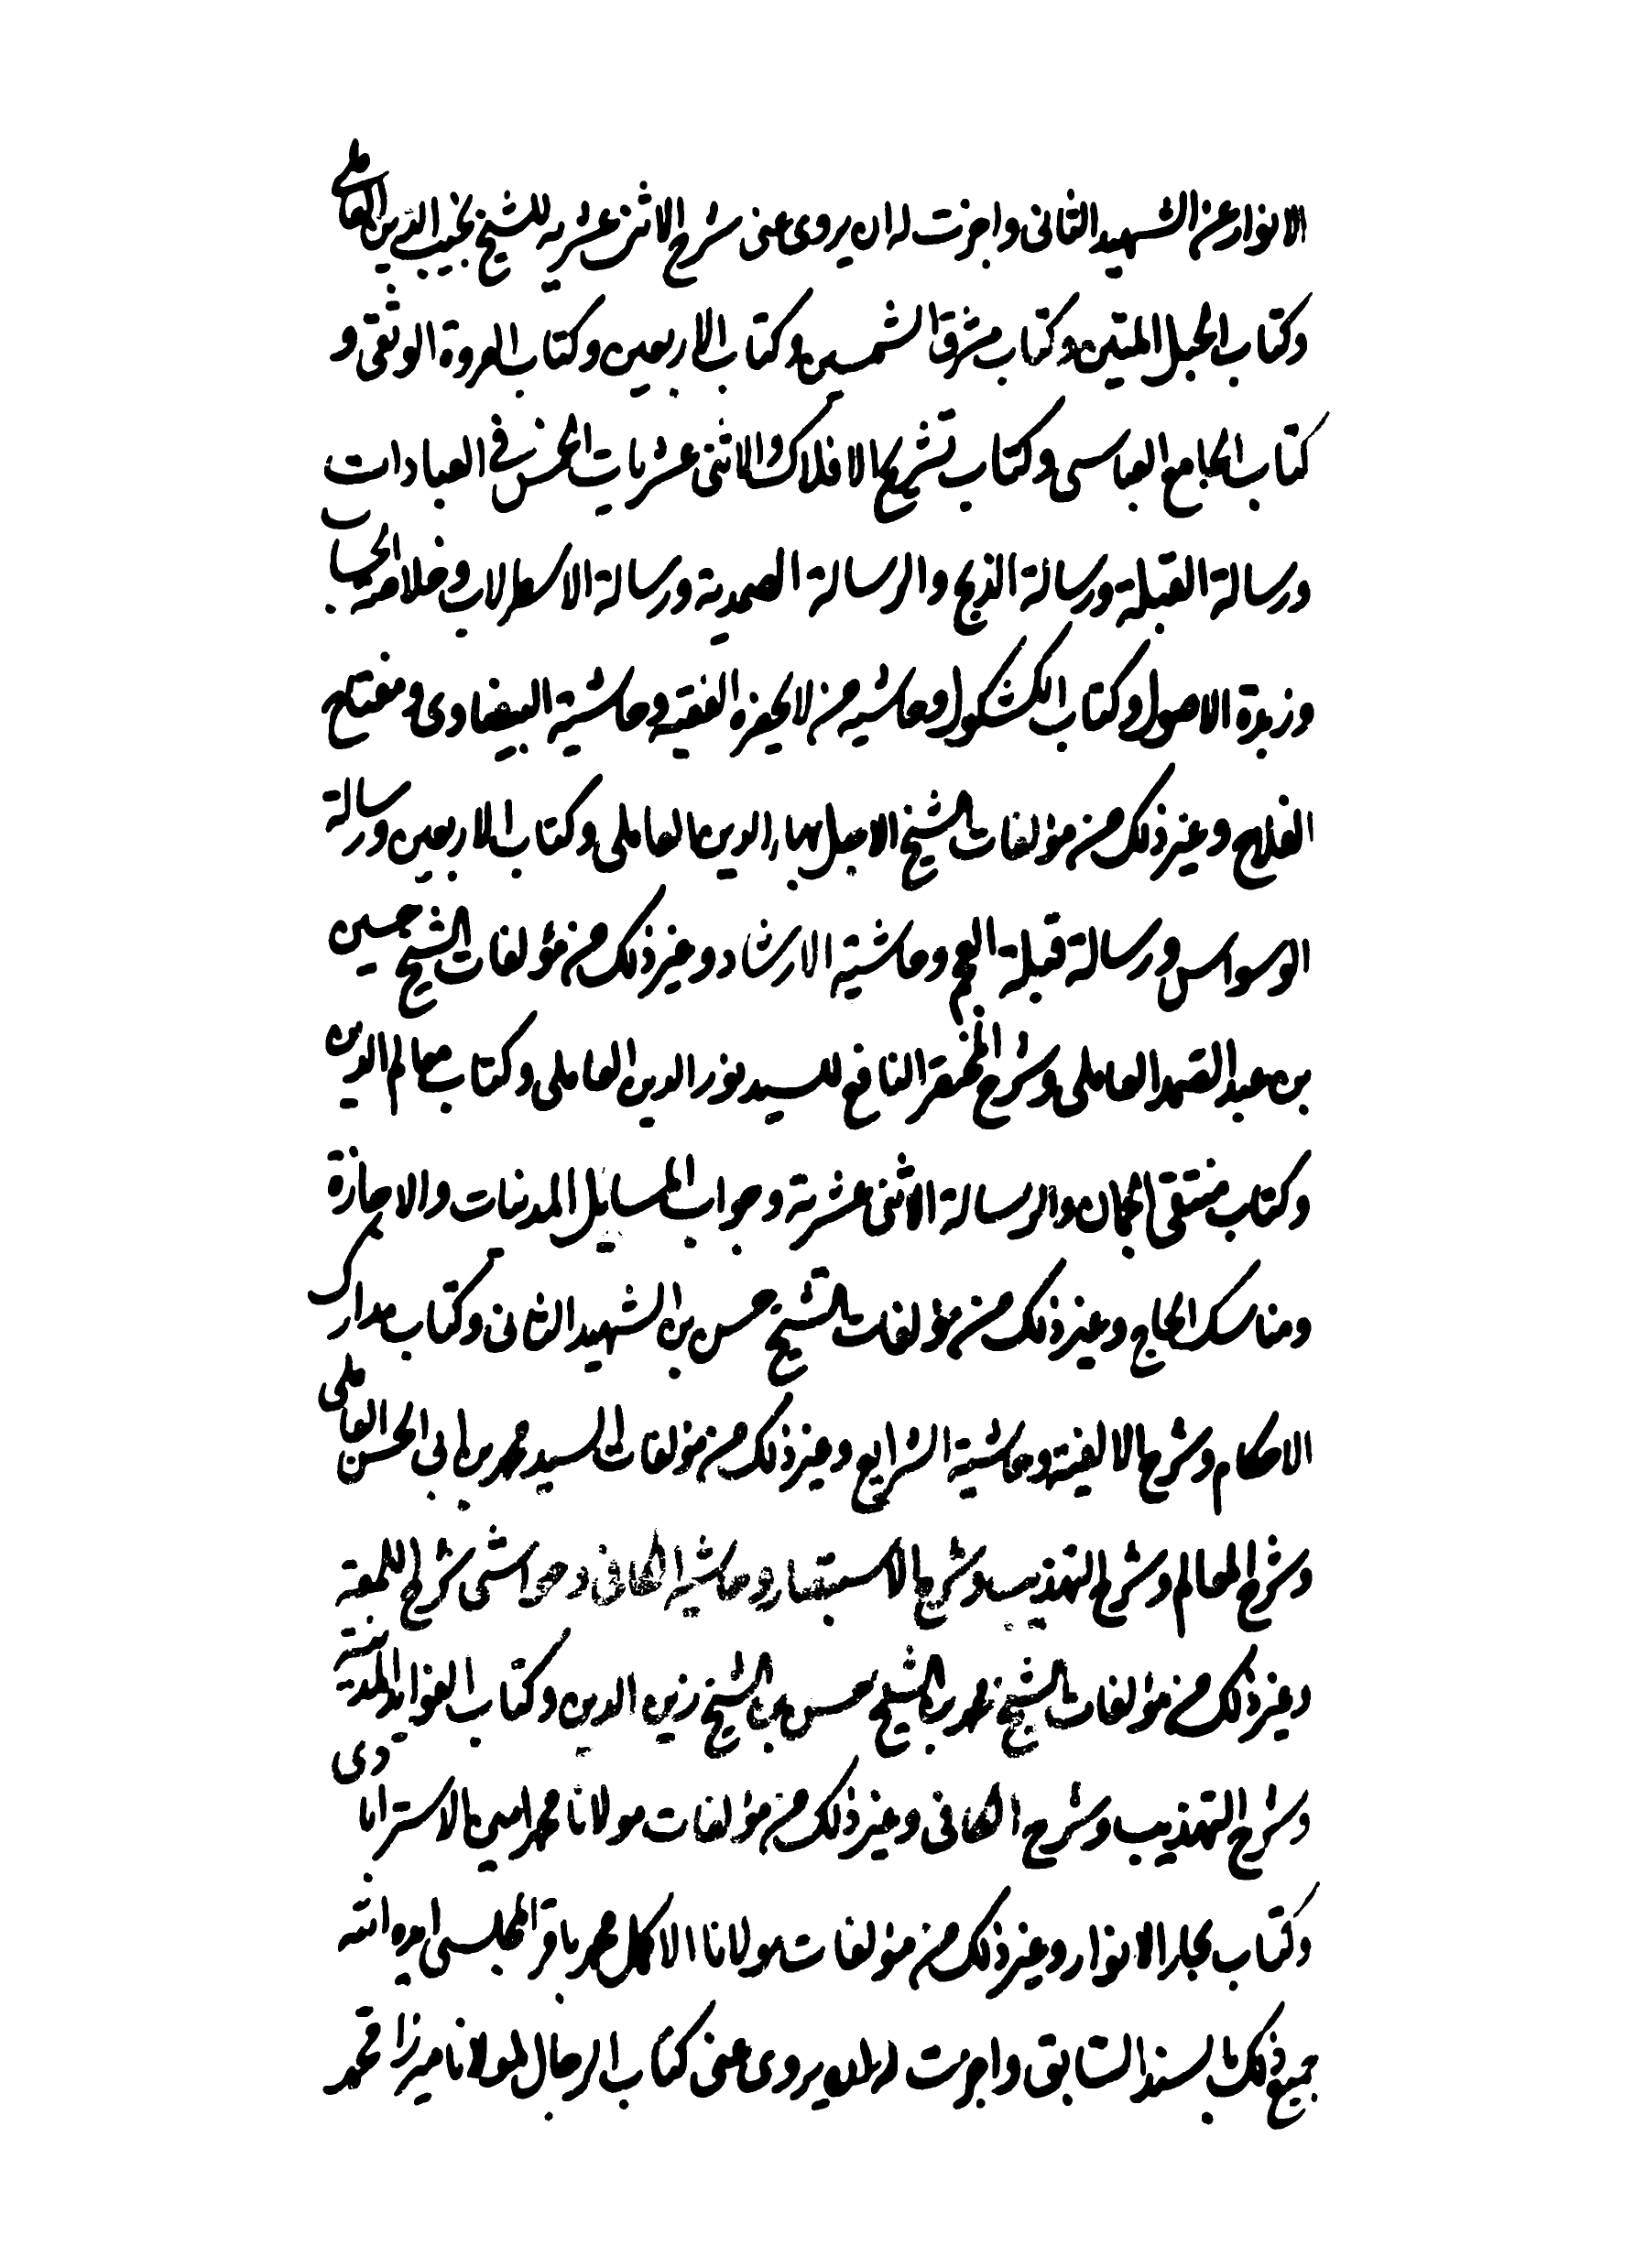 الانوار عن الشهيد الثانى واجزت له ان يروى عنى شرح الاثنى عشريه للشيخ نجيب الدين العاملى
وكتاب الحبل المتين وكتاب مشرق الشمسين وكتاب الاربعين وكتاب العروة الوثقى و
كتاب الجامع العباسى وكتاب تشريح الافلاك والاثنى عشريات الخمس فى العبادات
ورسالة القبلة ورسالة الذبح والرسالة الصمدية ورسالة الاسطرلاب وخلاصة الحساب
وزبدة الاصول وكتاب الكشكول وحاشيه من لايحضره الفقيه وحاشية البيضاوى ومفتاح
الفلاح وغير ذلك من مؤلفات الشيخ الاجل بهاء الدين العاملى وكتاب الاربعين ورسالة
الوسواس ورسالة قبلة العجم وحاشية الارشاد وغير ذلك من مؤلفات الشيخ حسين
بن عبد الصمد العاملى وشرح المختصر النافع للسيد نور الدين العاملى وكتاب معالم الدين
وكتاب منتقى الجمان والرسالة الاثنى عشرية وجواب المسايل المدنيات والاجازة
ومناسك الحاج وغير ذلك من مؤلفات الشيخ حسن بن الشهيد الثانى وكتاب مدارك
الاحكام وشرح الالفية وحاشية الشرايع وغير ذلك من مؤلفات السيد محمد بن ابى الحسن العاملى
وشرح المعالم وشرح التهذيب وشرح الاستبصار وحاشية الكافى وحواشى شرح اللمعة
وغير ذلك من مؤلفات الشيخ محمد بن الشيخ حسن بن الشيخ زين الدين وكتاب الفوايد المدنية
وشرح التهذيب وشرح الكافى وغير ذلك من مؤلفات مولانا محمد امين الاسترابادى
وكتاب بحار الانوار وغير ذلك من مؤلفات مولانا الاكمل محمد باقر المجلسى ايده الله
جميع ذلك بالسند السابق واجزت له ان يروى عنى كتاب الرجال لمولانا ميرزا محمد